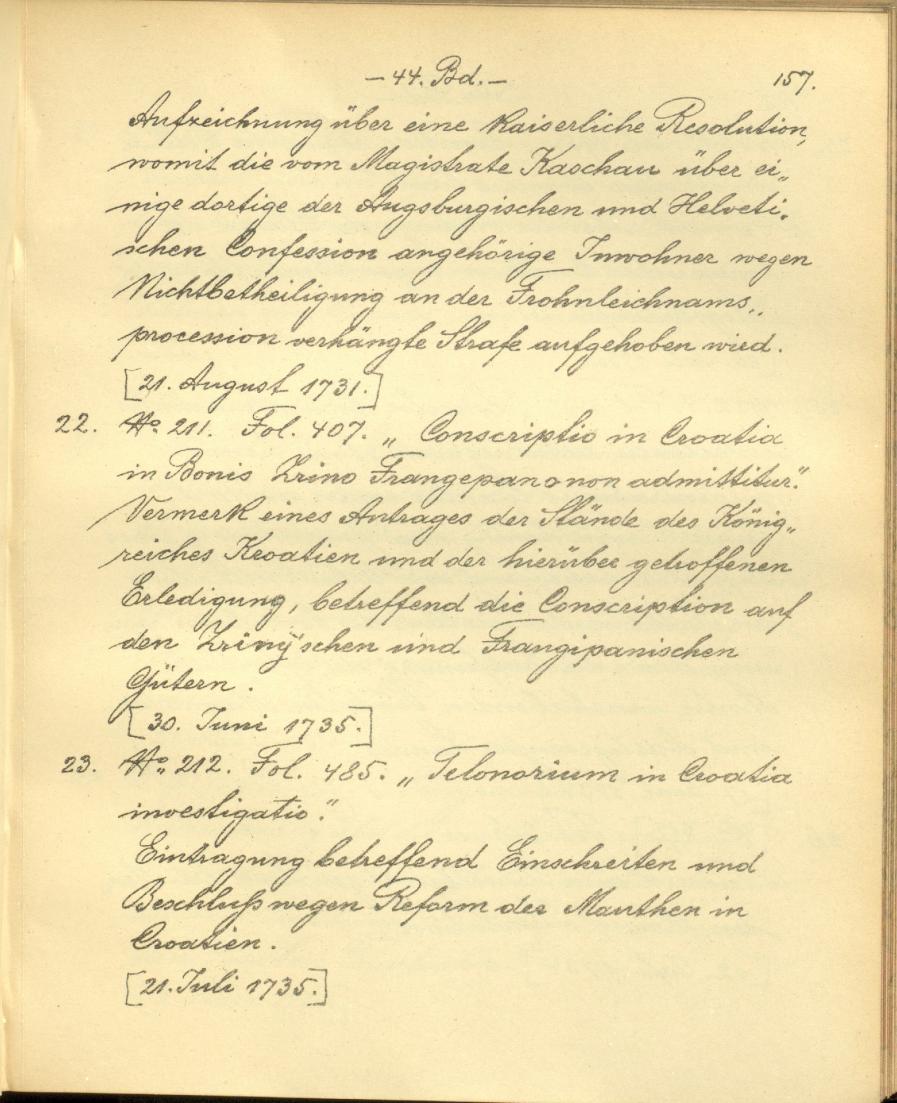 — 44. Bd. — 157.
Aufzeichnung über eine Kaiserliche Resolution,
womit die vom Magistrate Kaschau über ei„
nige dortige der Augsburgischen und Helveti„
schen Confession angehörige Inwohner wegen
Nichtbetheiligung an der Frohnleichnams„
procession verhängte Strafe aufgehoben wird.
[21. August 1731.]
22. No. 211. Fol. 407. „Conscriptio in Croatia
in Bonis Zrino Frangepano non admittitur."
Vermerk eines Antrages der Stände des König„
reiches Kroatien und der hierüber getroffenen
Erledigung, betreffend die Conscription auf
den Zriny'schen und Frangipanischen
Gütern.
[30. Juni 1735.]
23. No. 212. Fol. 485. „Telonorium in Croatia
investigatio."
Eintragung betreffend Einschreiten und
Beschluß wegen Reform der Mauthen in
Croatien.
[21. Juli 1735.]